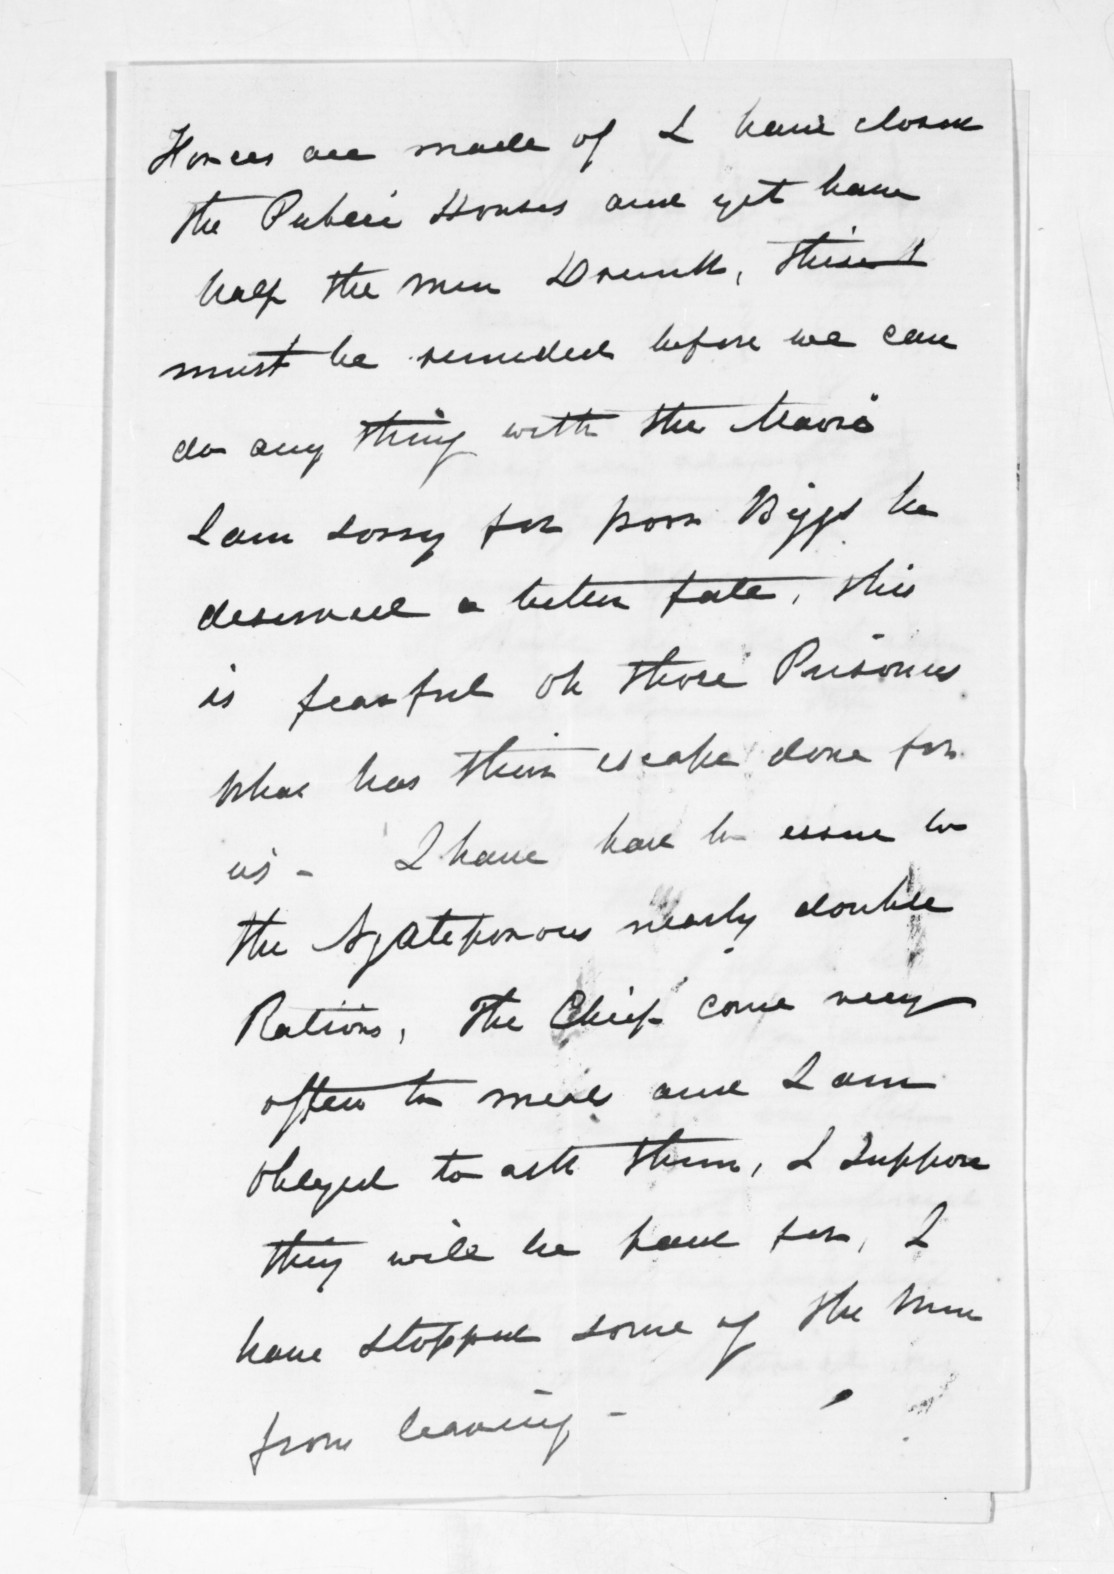 Forces are made of I have closed
the Public Houses and yet have
half the men Drunk, this
must be remided before we can
do any thing with the Maori
I am sorry for poor Biggs he
deserved a better fate, this
is fearful oh those Prisoners
what has their escape done for
us - I have had to issue to
the Ngatiporous nearly double
Rations, The Chief come very
often to meals and I am
obleged to ask them, I suppose
they will be paid for, I
have stopped some of the Men
from leaving -